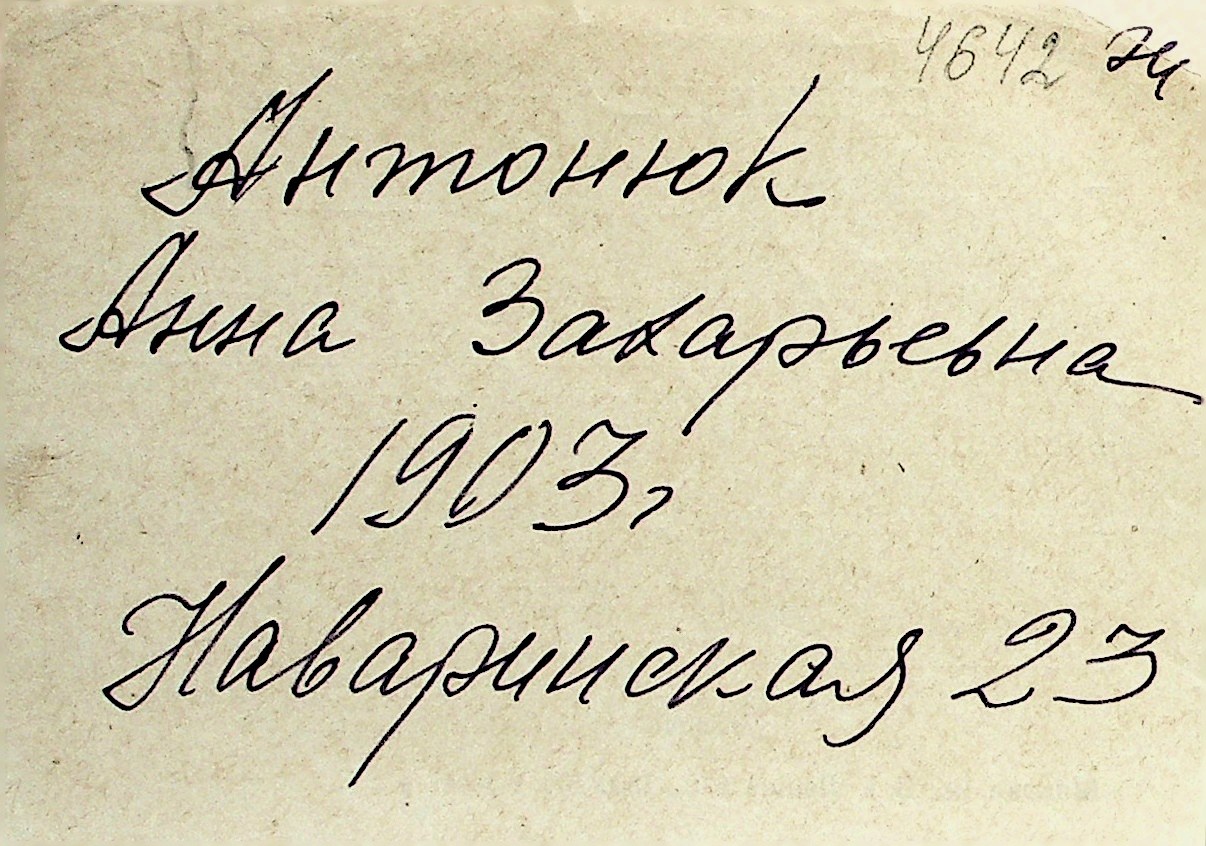 4642
Антонюк
Анна Захарьевна
1903г
Наваринская 23